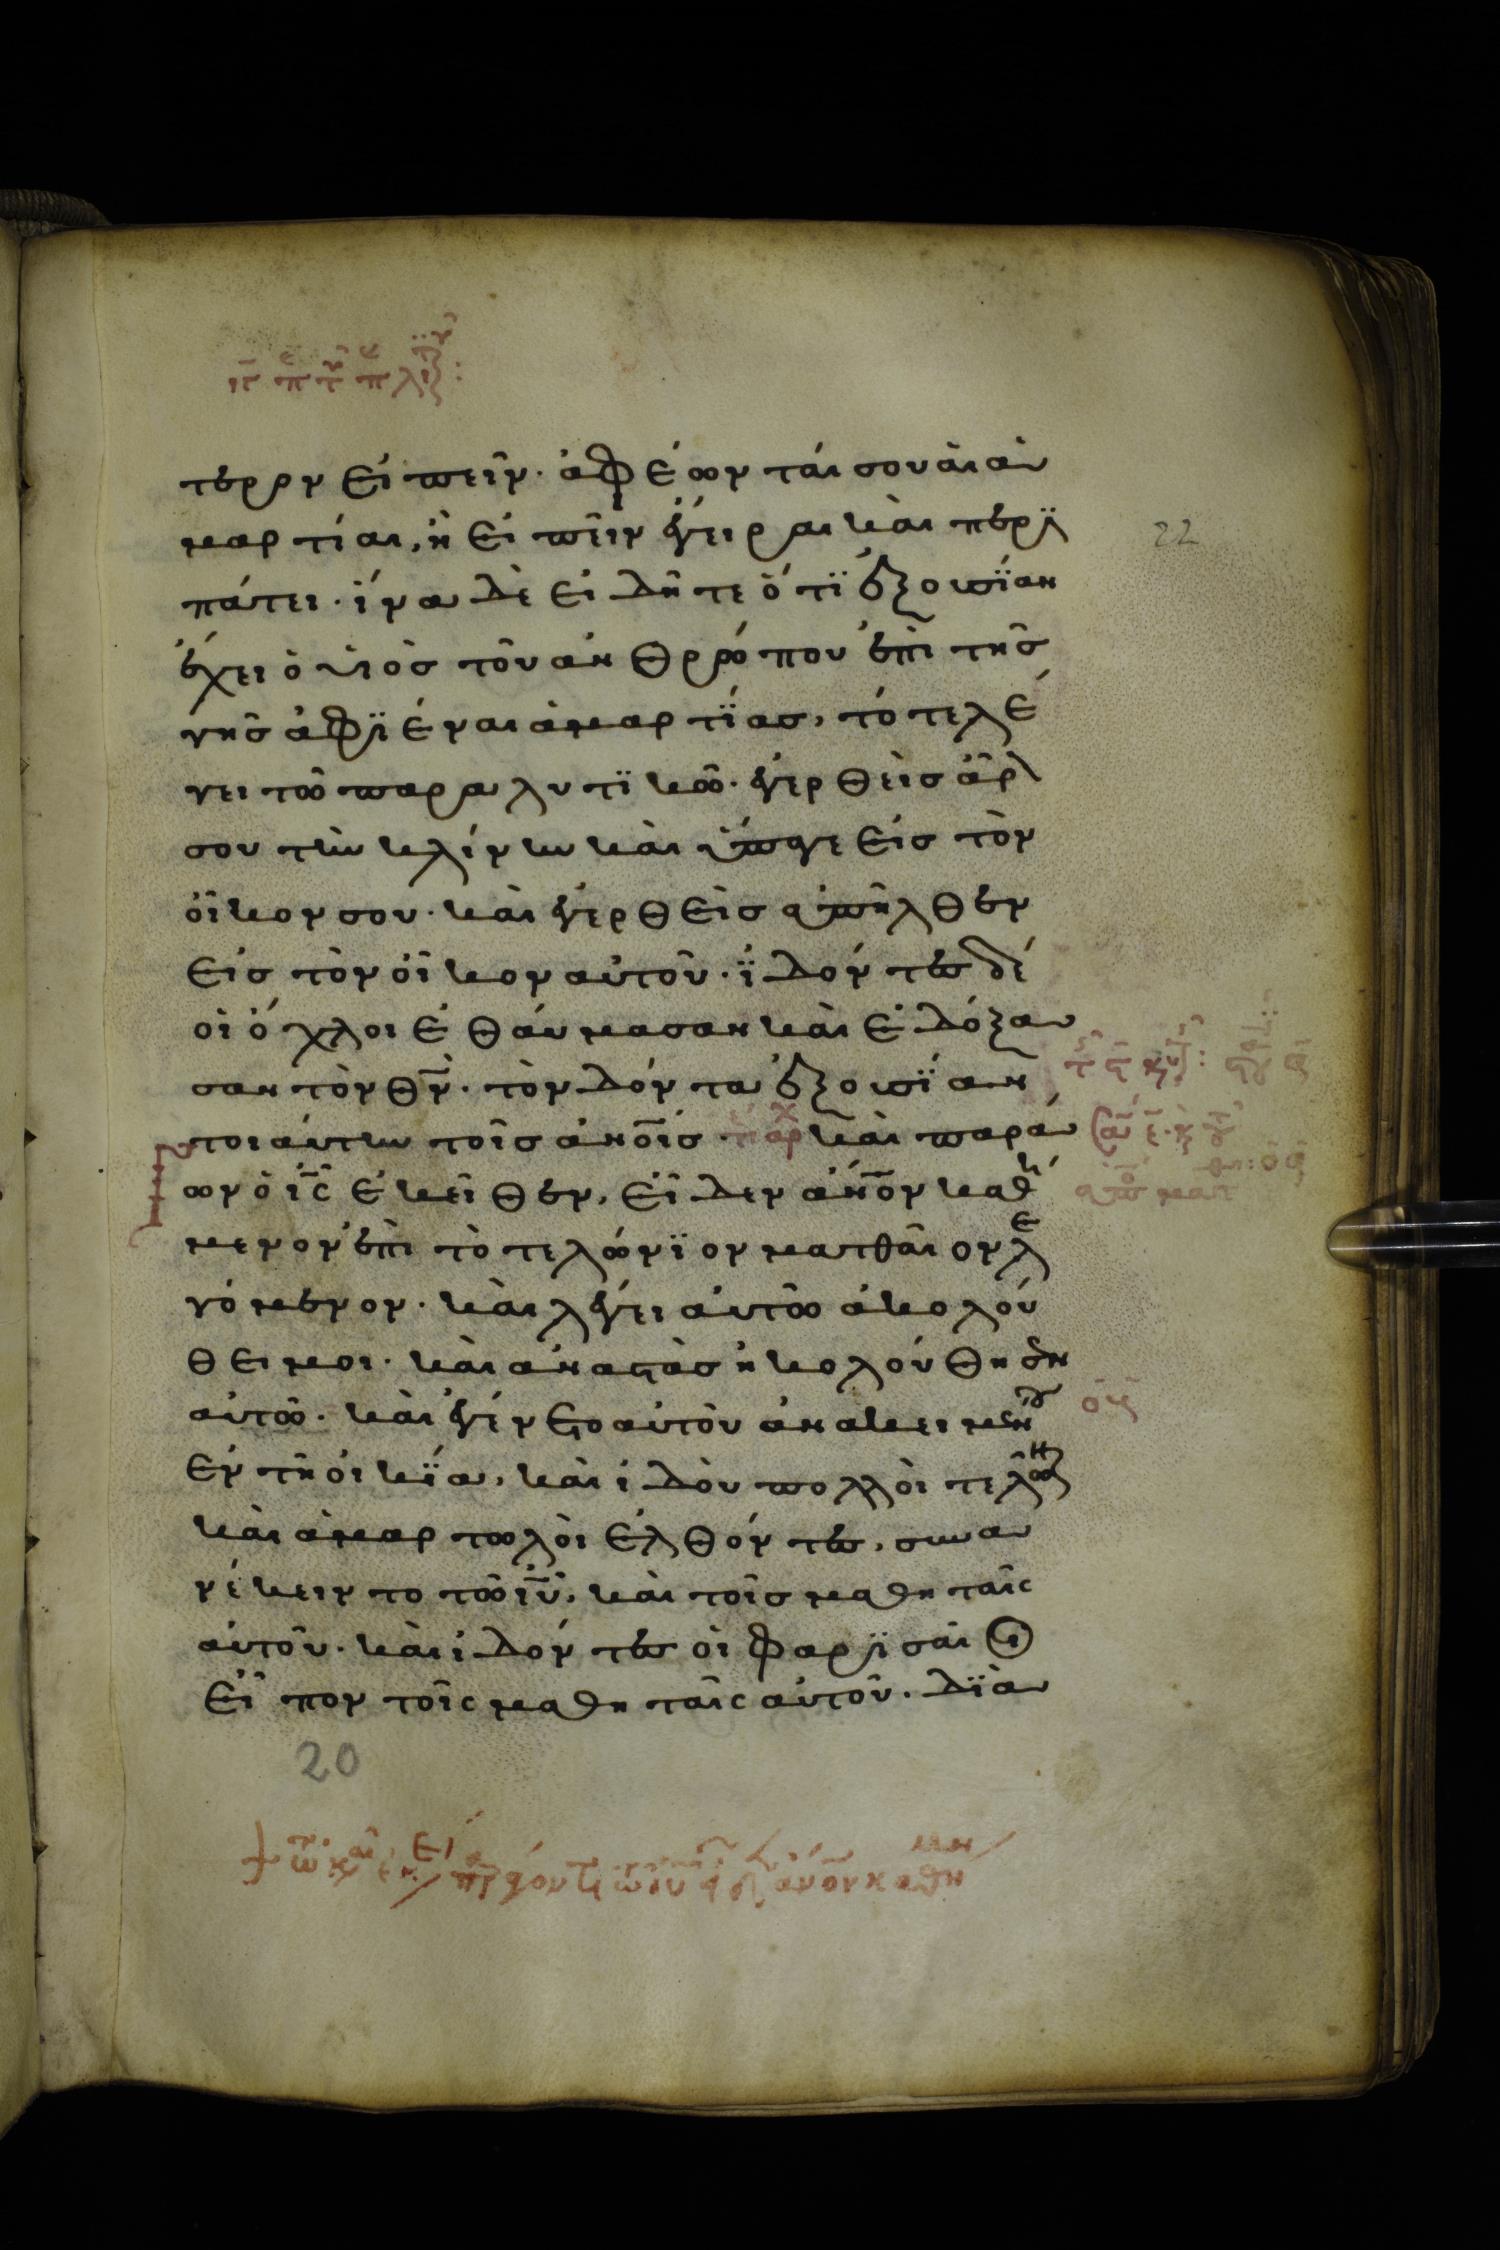 τερον εἰπεῖν· ἀφέωνταί σου αἱ ἁ
μαρτίαι, ἢ εἰπεῖν ἔγειραι καὶ περϊ
πάτει· ἵνα δὲ εἰδῆτε ὅτϊ ἐξουσΐαν
ἔχει ὁ υἱὸς τοῦ ἀνθρώπου ἐπὶ τῆς
γῆς ἀφϊέναι ἁμαρτΐας, τότε λέ
γει τῶ παραλυτϊκῶ· ἐγερθεὶς ἆρ
σου τὴν κλίνην καὶ ὕπαγε εἰς τὸν
οἶκον σου· καὶ ἐγερθεὶς ἀπῆλθεν
εἰς τὸν οἶκον αὐτοῦ· ἰδόντες δέ
οἱ ὄχλοι ἐθαύμασαν καὶ ἐδόξα
σαν τὸν θν̅· τὸν δόντα ἐξουσΐαν
τοιαύτην τοῖς ἀνοις· καὶ παρά
ων ὁ ις̅ ἐκεῖθεν, εἶδεν ἄνον καθή
μενον ἐπὶ τὸ τελώνϊον ματθαῖον λε
γόμενον· καὶ λέγει αὐτῶ ἀκολού
θει μοι· καὶ ἀναστὰς ἠκολούθησεν
αὐτῶ· καὶ ἐγένετο αὐτοῦ ἀνακειμένου
ἐν τῆ οἰκΐα, καὶ ἰδοὺ πολλοὶ τελῶν
καὶ ἁμαρτωλοὶ ἐλθόντες, συνα
νέκειντο τῶ ιυ̅, καὶ τοῖς μαθηταῖς
αὐτοῦ· καὶ ἰδόντες οἱ φαρϊσαῖοι
εἶπον τοῖς μαθηταῖς αὐτοῦ· δϊὰ
22
20